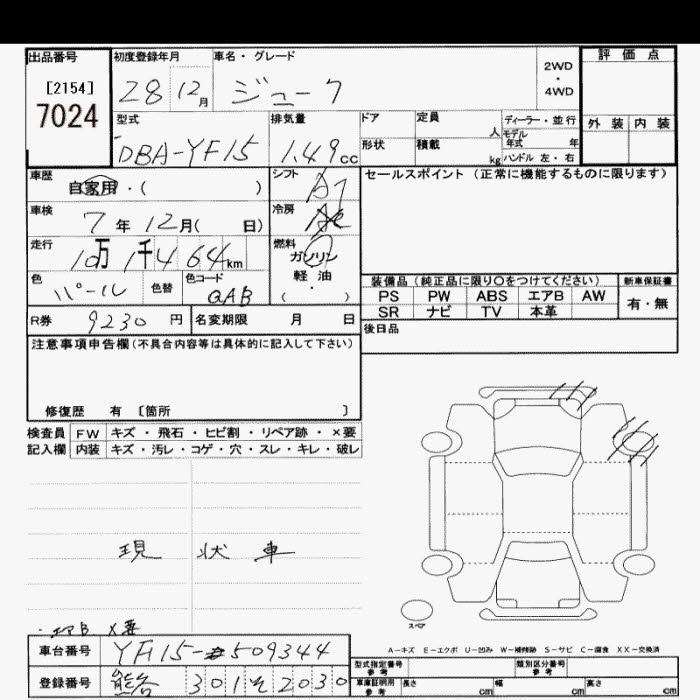 出品番号
[2154]
7024
初度登録年月
28 12月
車名・グレード
ジューク
2WD
・
4WD
評価点
外装 内装
型式
DBA-YF15
排気量
1.49cc
ドア
定員
人
形状
積載
kg
ディーラー・並行
モデル年式 年
ハンドル 左・右
車歴
自家用・( )
シフト
A7
セールスポイント (正常に機能するものに限ります)
車検
7年12月( 日)
冷房
走行
10万1千464km
燃料
ガソリン
・
軽油
( )
色
パール
色替
色コード
QAB
装備品 (純正品に限り○をつけてください)
新車保証書
PS PW ABS エアB AW
有・無
SR ナビ TV 本革
R券 9230円
名変期限 月 日
後日品
注意事項申告欄(不具合内容等は具体的に記入して下さい)
修復歴 有 〔箇所 〕
検査員記入欄
FW キズ・飛石・ヒビ割・リペア跡・×要
内装 キズ・汚レ・コゲ・穴・スレ・キレ・破レ
現状車
・エアB ×要
スペア
A-キズ E-エクボ U-凹み W-補修跡 S-サビ C-腐食 XX-交換済
車台番号 YF15-509344
型式指定番号
参考
類別区分番号
参考
登録番号 熊谷 301 そ 2030
車庫証明用
参考
長さ cm 幅 cm 高さ cm